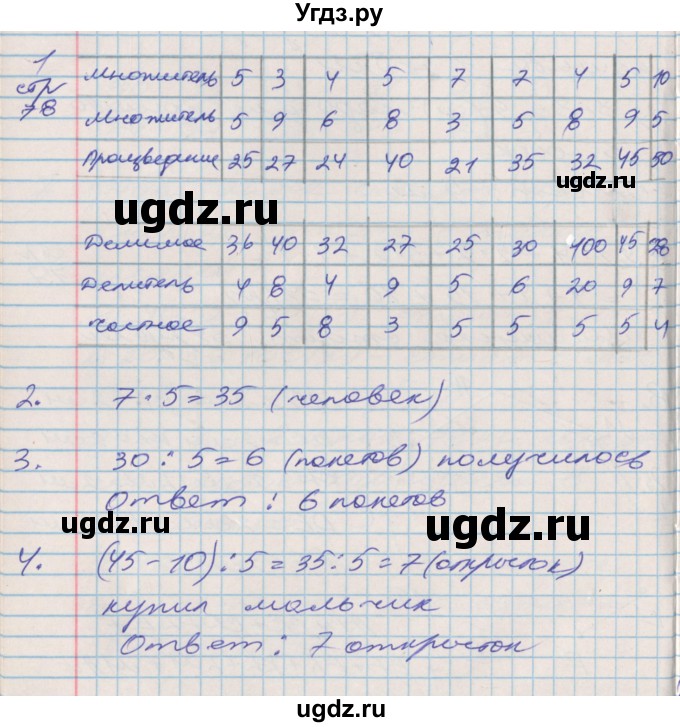 Угдз.ру
1
стр
78
Множитель 5 3 4 5 7 7 4 5 10
Множитель 5 9 6 8 3 5 8 9 5
Произведение 25 27 24 40 21 35 32 45 50
ugdz.ru
ugdz.ru
Делимое 36 40 32 27 25 30 100 45 28
Делитель 4 8 4 9 5 6 20 9 7
Частное 9 5 8 3 5 5 5 5 4
2. 7 · 5 = 35 (человек)
3. 30 : 5 = 6 (пакетов) получилось
Ответ : 6 пакетов
ugdz.ru
ugdz.ru
4. (45 - 10) : 5 = 35 : 5 = 7 (открыток)
купил мальчик
Ответ : 7 открыток
ugdz.ru
ugdz.ru